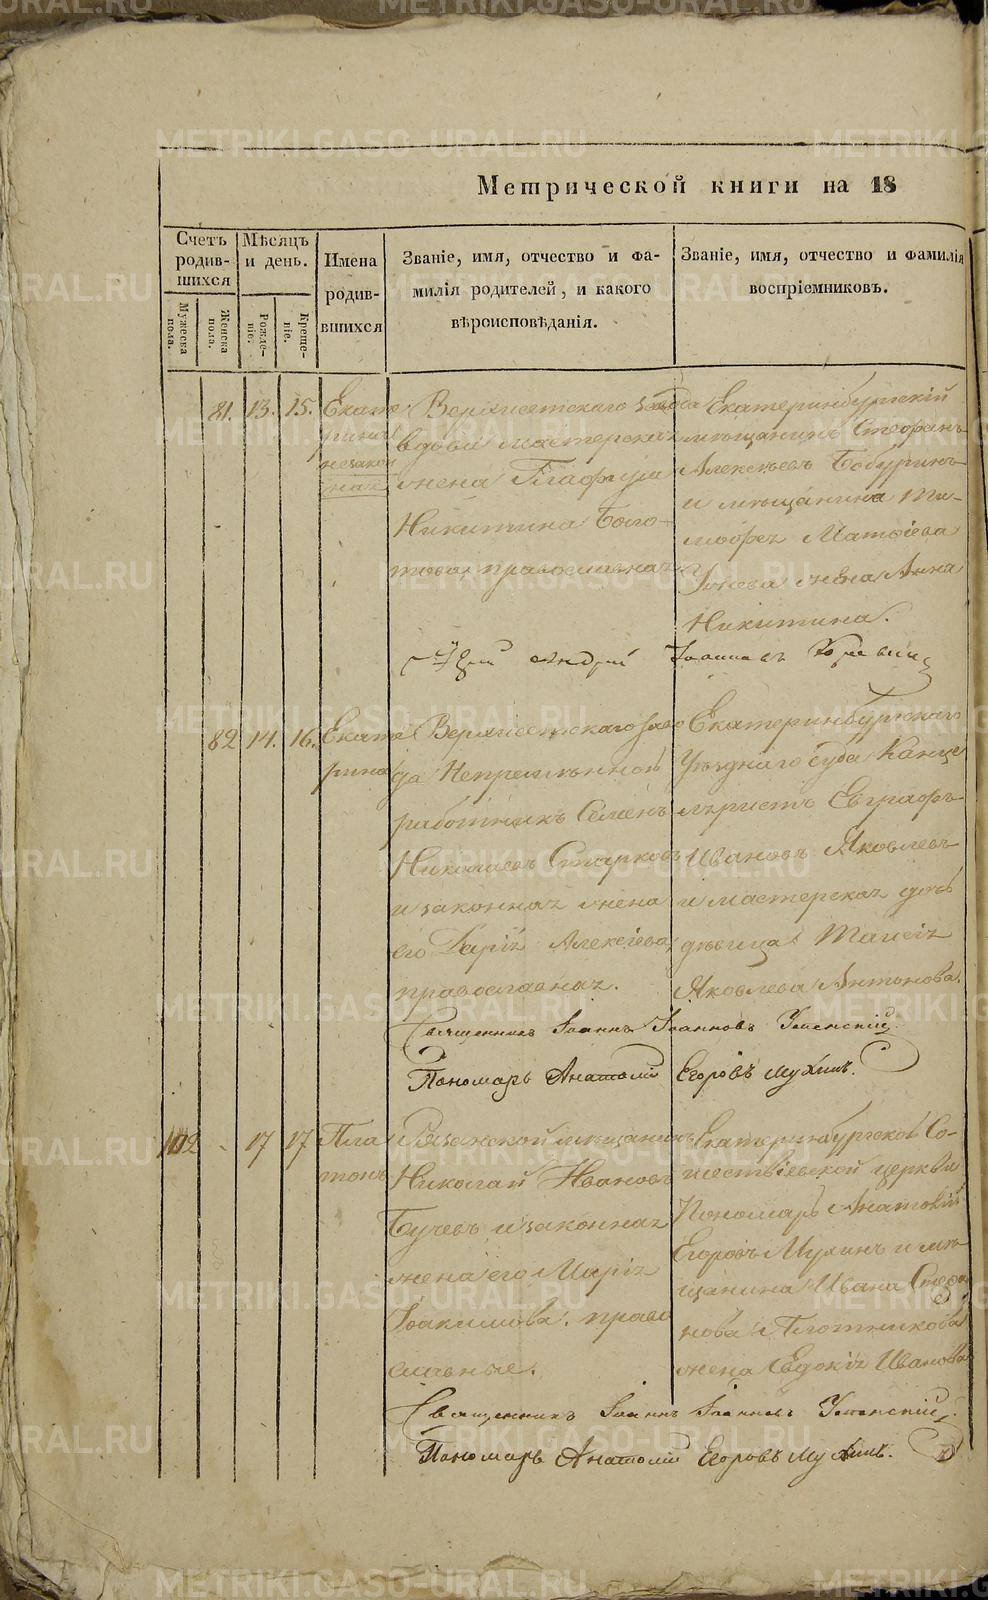 METRIKI.GASO-URAL.RU
Метрической книги на 18
Счетъ родив-шихся
Мѣсяцъ и день.
Имена родив-вшихся
Званіе, имя, отчество и фа-
милія родителей, и какого
вѣроисповѣданія.
Званіе, имя, отчество и фамилія
воспріемниковъ.
Мужеска пола.
Женска пола.
Рожде-ніе.
Креще-ніе.
81. 13. 15. Екате
рина
незакон
ная
Верхисетскаго завода
вдова мастерская
жена Глафира
Никитина Бого-
това, православная
Екатеринбургскій
мѣщанинъ Стефанъ
Алексѣевъ Бабуринъ
и мѣщанина Ти-
мофея Матѳіева
жена Анна
Никитина.
Андрей Іоанновъ
82 14. 16. Екате
рина
Верхисетскаго заво
да Непремѣнной
работникъ Семенъ
Николаевъ Старковъ
и законная жена
его Дарія Алексіева,
православная.
Екатеринбургскаго
Уѣзднаго суда Канце
ляристъ Евграфъ
Ивановъ Яковлевъ
и мастерская дочь
дѣвица Таисія
Яковлева Антонова.
Священникъ Іоаннъ Іоанновъ Успенскій
Пономарь Анатолій Егоровъ Мухинъ.
102 - 17 17 Пла
тонъ
мѣщанинъ
Николай Ивановъ
Бучевъ и законная
жена его Марія
Іоакимова. право
славные.
Екатеринбургской Со-
шествіевской церкви
Пономарь Анатолій
Егоровъ Мухинъ и мѣ-
щанина Ивана Стефа
нова Плотникова
жена Евдокія Иванова
Священникъ Іоаннъ Іоанновъ Успенскій.
Пономарь Анатолій Егоровъ Мухинъ.